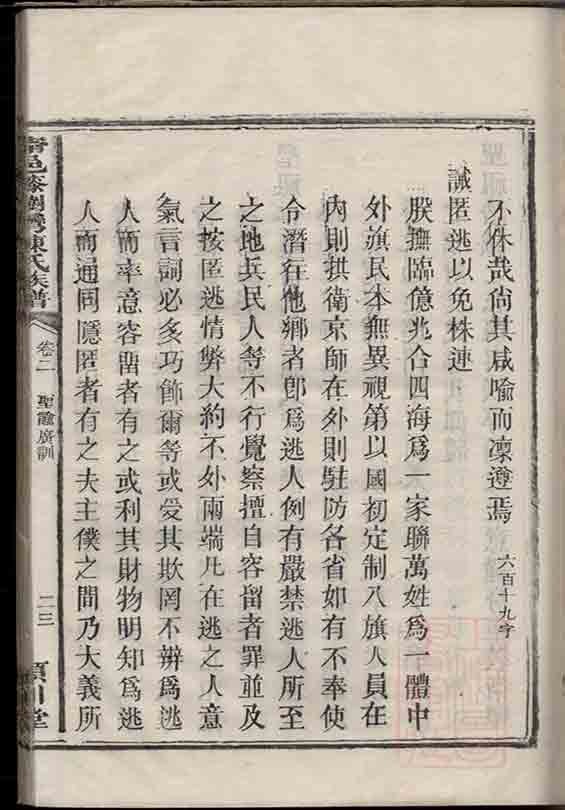 不休哉尚其咸喻而凜遵焉 六百十九字
誡匿逃以免株連
朕撫臨億兆合四海爲一家聯萬姓爲一體中
外旗民本無異視第以國初定制八旗人員在
內則拱衛京師在外則駐防各省如有不奉使
令潛往他鄉者卽爲逃人例有嚴禁逃人所至
之地兵民人等不行覺察擅自容留者罪並及
之按匿逃情弊大約不外兩端凡在逃之人意
氣言詞必多巧飾爾等或受其欺罔不辨爲逃
人而率意容留者有之或利其財物明知爲逃
人而通同隱匿者有之夫主僕之間乃大義所
甯邑 陳氏族譜 卷二 聖諭廣訓 二三 潁川堂